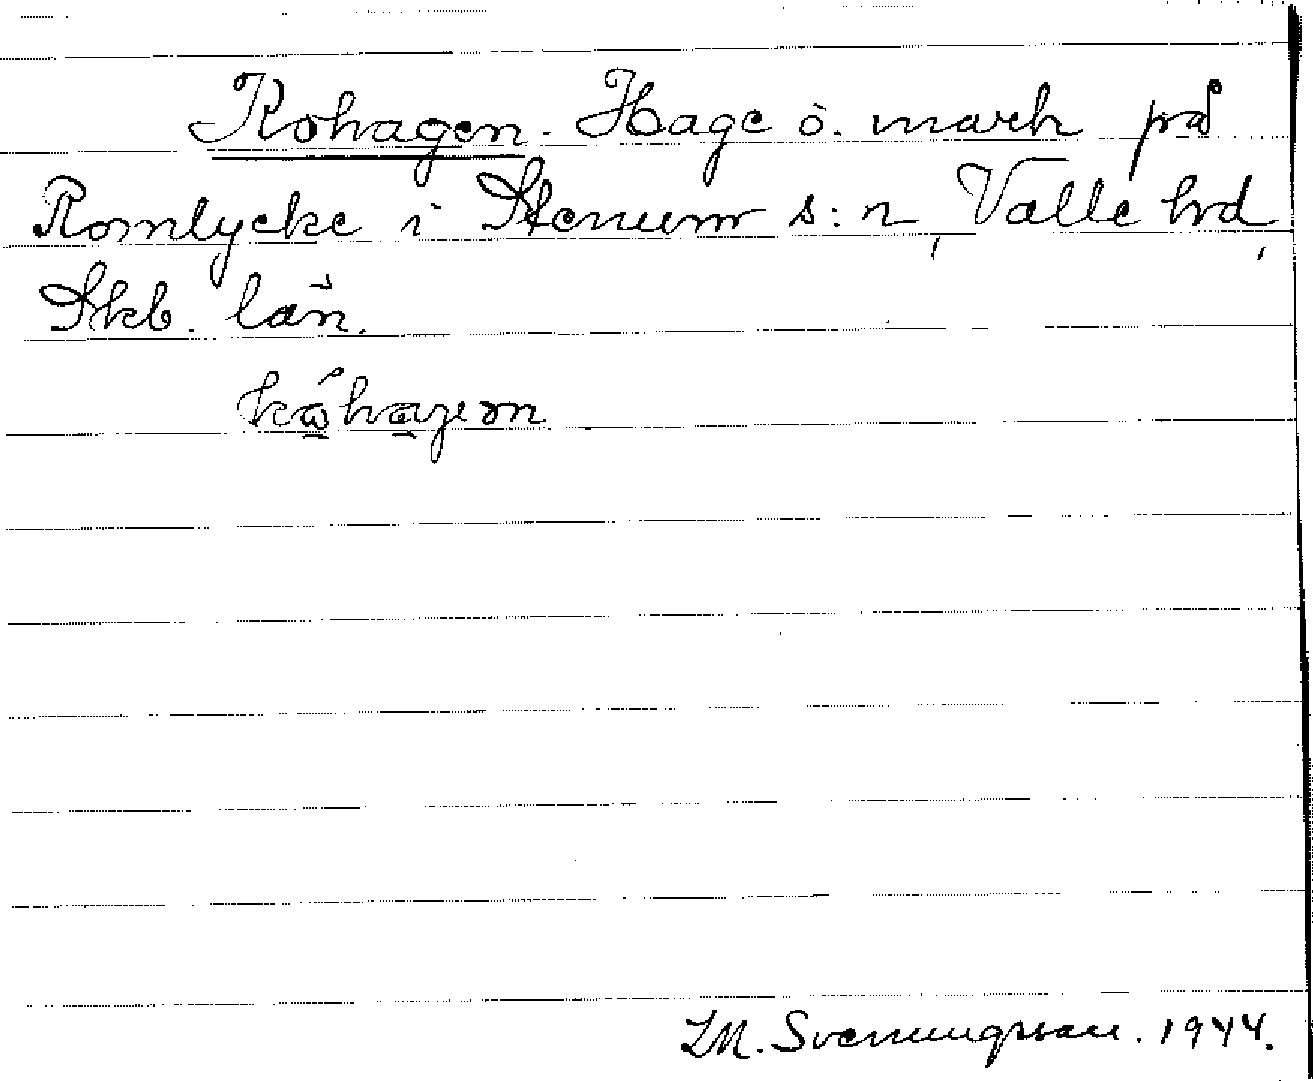 Kohagen. Hage o. mark på
Romlycke i Stenum s:n, Valle hrd,
Skb. län.
kóhagen
M. Svenungsson. 1944.